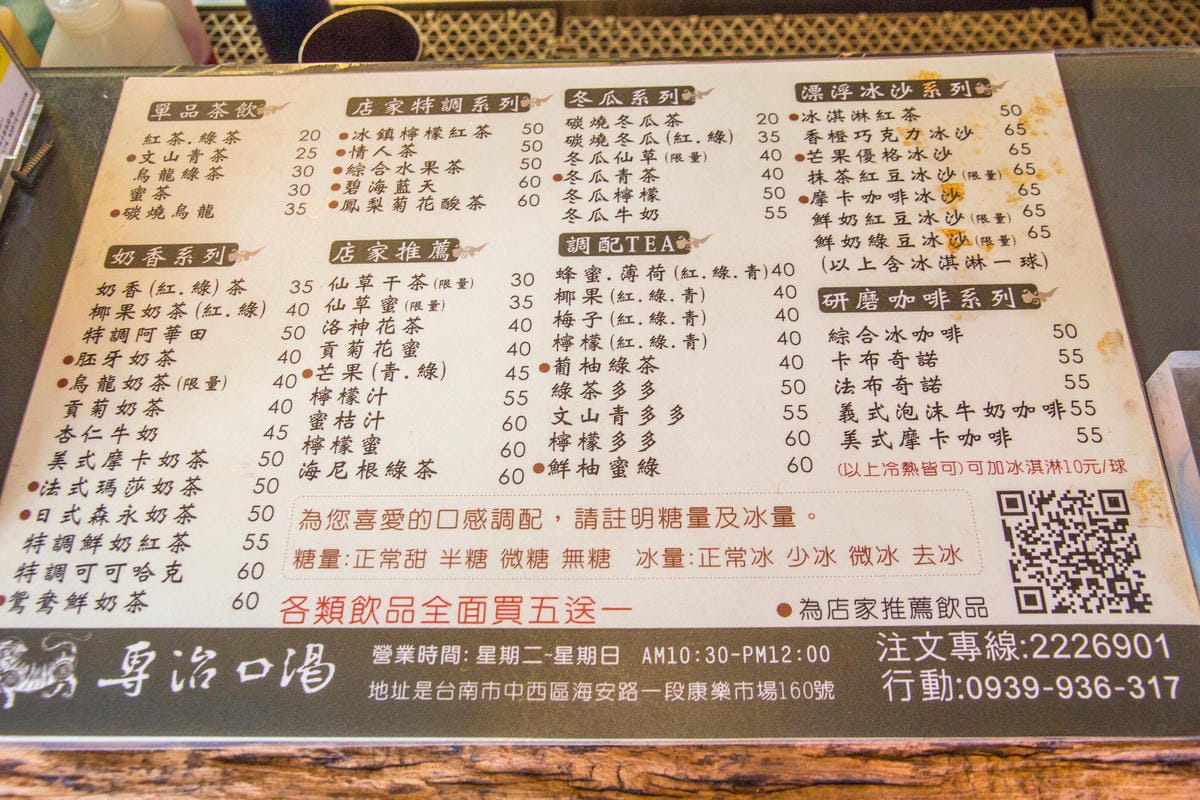 單品茶飲
紅茶.綠茶 20
●文山青茶 25
烏龍綠茶 30
蜜茶 30
●碳燒烏龍 35
奶香系列
奶香(紅.綠)茶 35
椰果奶茶(紅.綠) 40
特調阿華田 50
●胚牙奶茶 40
●烏龍奶茶(限量) 40
貢菊奶茶 40
杏仁牛奶 45
美式摩卡奶茶 50
●法式瑪莎奶茶 50
●日式森永奶茶 50
特調鮮奶紅茶 55
特調可可哈克 60
●鴛鴦鮮奶茶 60
店家特調系列
●冰鎮檸檬紅茶 50
●情人茶 50
●綜合水果茶 50
●碧海藍天 60
●鳳梨菊花酸茶 60
店家推薦
仙草干茶(限量) 30
仙草蜜(限量) 35
洛神花茶 40
貢菊花蜜 40
●芒果(青.綠) 45
檸檬汁 55
蜜桔汁 60
檸檬蜜 60
海尼根綠茶 60
冬瓜系列
碳燒冬瓜茶 20
碳燒冬瓜(紅.綠) 35
冬瓜仙草(限量) 40
●冬瓜青茶 40
冬瓜檸檬 50
冬瓜牛奶 55
調配TEA
蜂蜜.薄荷(紅.綠.青) 40
椰果(紅.綠.青) 40
梅子(紅.綠.青) 40
檸檬(紅.綠.青) 40
●葡柚綠茶 40
綠茶多多 50
文山青多多 55
檸檬多多 60
●鮮柚蜜綠 60
漂浮冰沙系列
●冰淇淋紅茶 50
香橙巧克力冰沙 65
●芒果優格冰沙 65
抹茶紅豆冰沙(限量) 65
●摩卡咖啡冰沙 65
鮮奶紅豆冰沙(限量) 65
鮮奶綠豆冰沙(限量) 65
(以上含冰淇淋一球)
研磨咖啡系列
綜合冰咖啡 50
卡布奇諾 55
法布奇諾 55
義式泡沫牛奶咖啡 55
美式摩卡咖啡 55
(以上冷熱皆可)可加冰淇淋10元/球
為您喜愛的口感調配，請註明糖量及冰量。
糖量:正常甜 半糖 微糖 無糖 冰量:正常冰 少冰 微冰 去冰
各類飲品全面買五送一
●為店家推薦飲品
專治口渴
營業時間: 星期二~星期日 AM10:30-PM12:00
地址是台南市中西區海安路一段康樂市場160號
注文專線:2226901
行動:0939-936-317